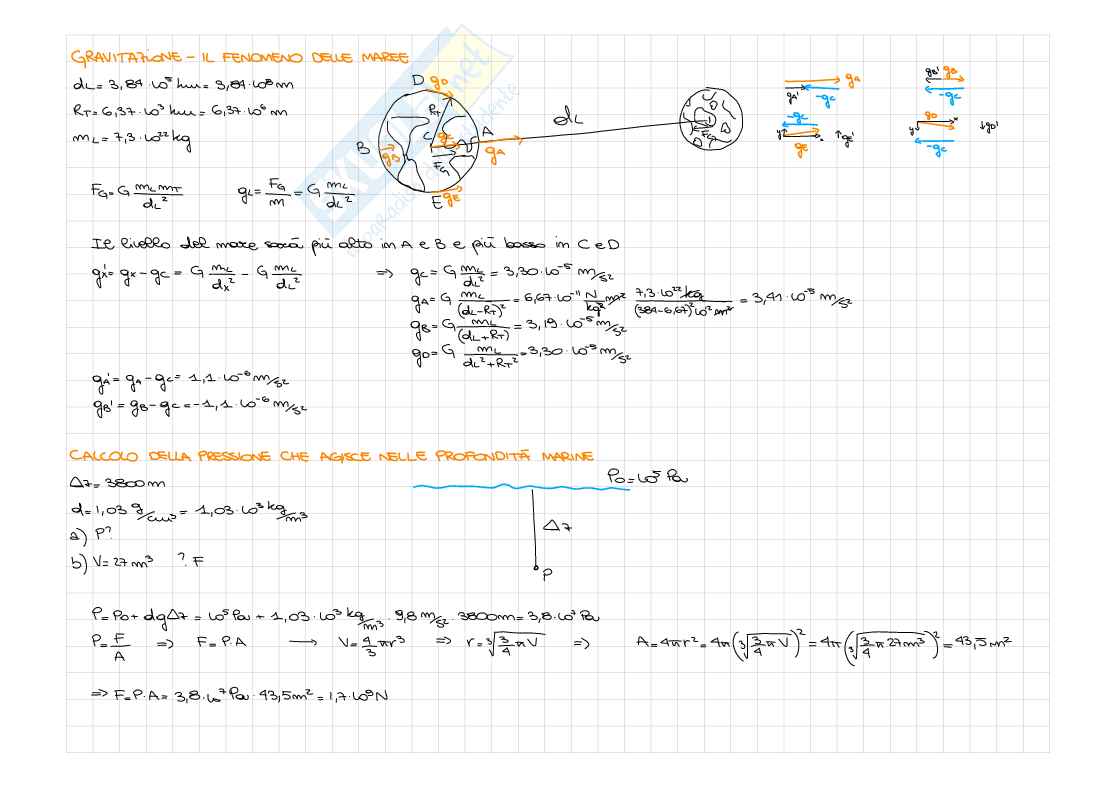 GRAVITAZIONE - IL FENOMENO DELLE MAREE
dL = 3,84 · 10⁵ km = 3,84 · 10⁸ m
RT = 6,37 · 10³ km = 6,37 · 10⁶ m
mL = 7,3 · 10²² kg
D gD
RT
C gC A
B gB gA
FG
E gE
dL
FG
gA
gA' -gC
gB' gB
-gC
-gC
y x
gE gE'
gD x
y gD'
-gC
FG = G mL mT / dL² gL = FG / m = G mL / dL²
Il livello del mare sarà più alto in A e B e più basso in C e D
gx' = gx - gC = G mL / dx² - G mL / dL² ⇒ gC = G mL / dL² = 3,30 · 10⁻⁵ m/s²
gA = G mL / (dL-RT)² = 6,67 · 10⁻¹¹ N/kg² m² 7,3 · 10²² kg / (384-6,67)² 10² m² = 3,41 · 10⁻⁵ m/s²
gB = G mL / (dL+RT) = 3,19 · 10⁻⁵ m/s²
gD = G mL / dL²+RT² = 3,30 · 10⁻⁵ m/s²
gA' = gA - gC = 1,1 · 10⁻⁶ m/s²
gB' = gB - gC = -1,1 · 10⁻⁶ m/s²
CALCOLO DELLA PRESSIONE CHE AGISCE NELLE PROFONDITÀ MARINE
Δz = 3800 m
P0 = 10⁵ Pa
d = 1,03 g/cm³ = 1,03 · 10³ kg/m³
Δz
a) P?
b) V = 27 m³ ? F
P
P = P0 + dgΔz = 10⁵ Pa + 1,03 · 10³ kg/m³ · 9,8 m/s² · 3800 m = 3,8 · 10⁷ Pa
P = F/A ⇒ F = P·A → V = 4/3 πr³ ⇒ r = ³√(3/4 π V) ⇒ A = 4πr² = 4π (³√(3/4 π V))² = 4π (³√(3/4 π 27m³))² = 43,5 m²
⇒ F = P·A = 3,8 · 10⁷ Pa · 43,5 m² = 1,7 · 10⁹ N